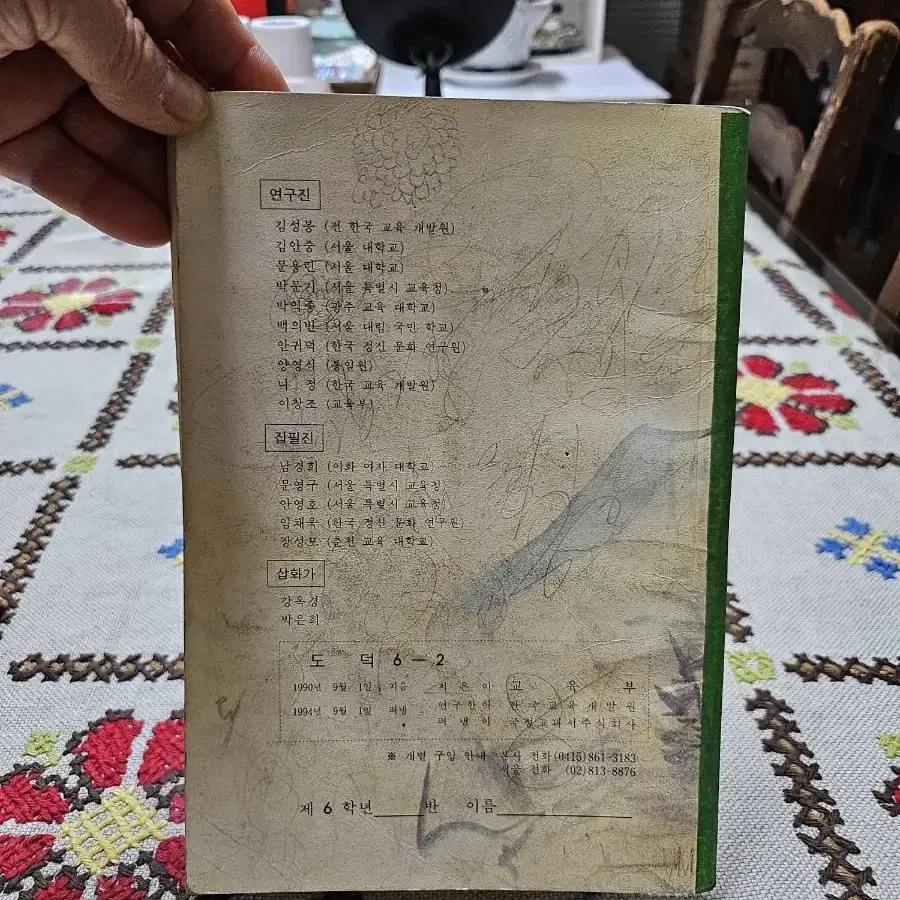 연구진
김성봉 (전 한국 교육 개발원)
김안중 (서울 대학교)
문용린 (서울 대학교)
박문기 (서울 특별시 교육청)
박익충 (광주 교육 대학교)
백의빈 (서울 대림 국민 학교)
안귀덕 (한국 정신 문화 연구원)
양영식 (통일원)
나 정 (한국 교육 개발원)
이창조 (교육부)
집필진
남경희 (이화 여자 대학교)
문영구 (서울 특별시 교육청)
안영호 (서울 특별시 교육청)
임채욱 (한국 정신 문화 연구원)
장성모 (춘천 교육 대학교)
삽화가
강옥성
박은희
도 덕 6―2
1990년 9월 1일 지음 지은이 교 육 부
1994년 9월 1일 펴냄 연구한이 한국교육개발원
펴낸이 국정교과서주식회사
※ 개별 구입 안내: 본사 전화 (0415)861-3183
서울 전화 (02)813-8876
제 6 학년 반 이름